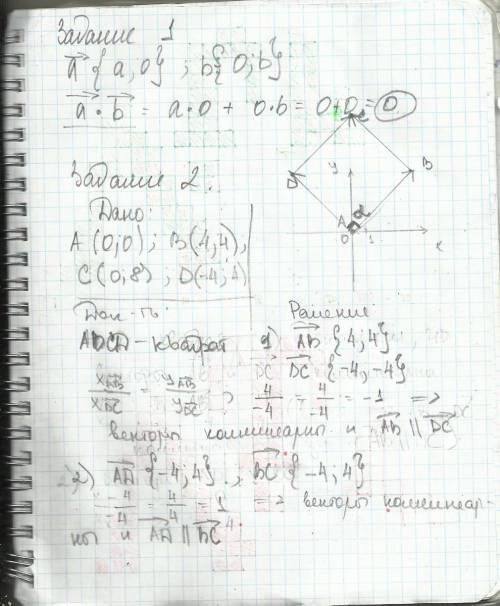 Задание 1
a {a, 0} ; b{0; b}
a · b = a·0 + 0·b = 0+0 = 0
Задание 2.
Дано:
A (0;0) ; B(4;4),
C (0, 8) ; D(-4; 4)
D
y
B
A
α
0
1
x
Док-ть:
ABCD - квадрат
Решение:
1) AB {4; 4}
DC DC {-4; -4}
x AB / x DC = y AB / y DC ; 4/-4 = 4/-4 = -1 =>
векторы коллинеарны и AB || DC
2) AD {-4; 4} ; BC {-4; 4}
-4/-4 = 4/4 = 1 => векторы коллинеар-
ны и AD || BC